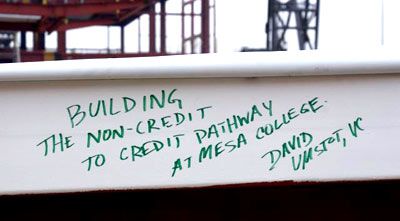 BUILDING
THE NON-CREDIT
TO CREDIT PATHWAY
AT MESA COLLEGE.
DAVID
UMSTOT, VC